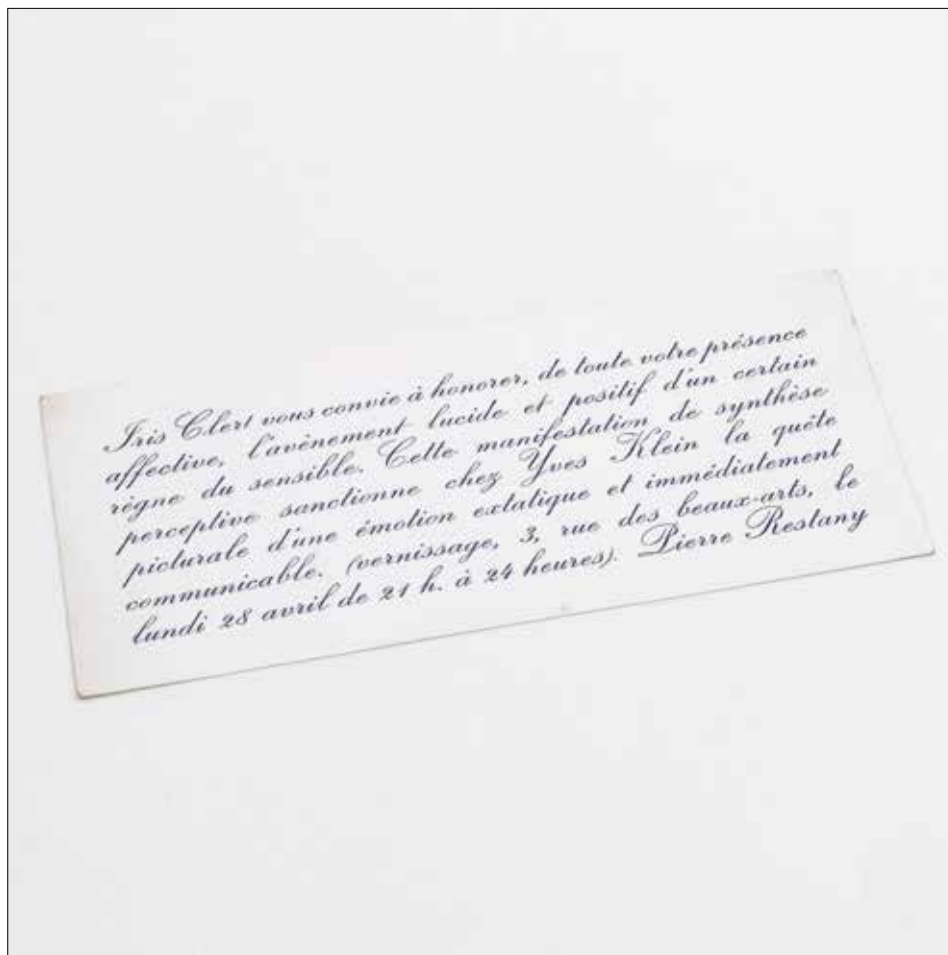 Iris Clert vous convie à honorer, de toute votre présence
affective, l'avènement lucide et positif d'un certain
règne du sensible. Cette manifestation de synthèse
perceptive sanctionne chez Yves Klein la quête
picturale d'une émotion extatique et immédiatement
communicable. (vernissage, 3, rue des beaux-arts, le
lundi 28 avril de 21 h. à 24 heures). Pierre Restany